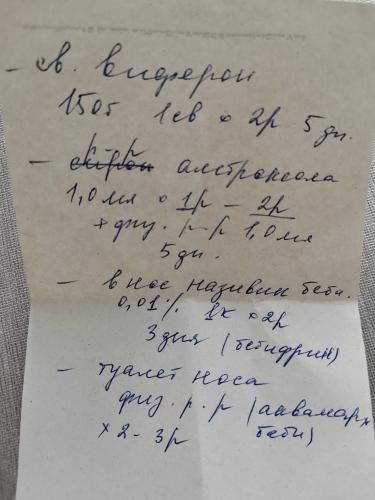 - св. виферон
150т 1св × 2р 5 дн.
- р-р амброксола
1,0 мл × 1р - 2р
+ физ. р-р 1,0 мл
5 дн.
- в нос називин беби.
0,01% 1к × 2р
3 дня (бебифрин)
- туалет носа
физ. р-р (аквамарис
× 2-3р беби)